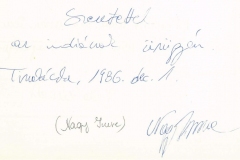 Szeretettel
az indiánok ürügyén.
1986. dec. 1.
(Nagy Imre) Nagy Imre